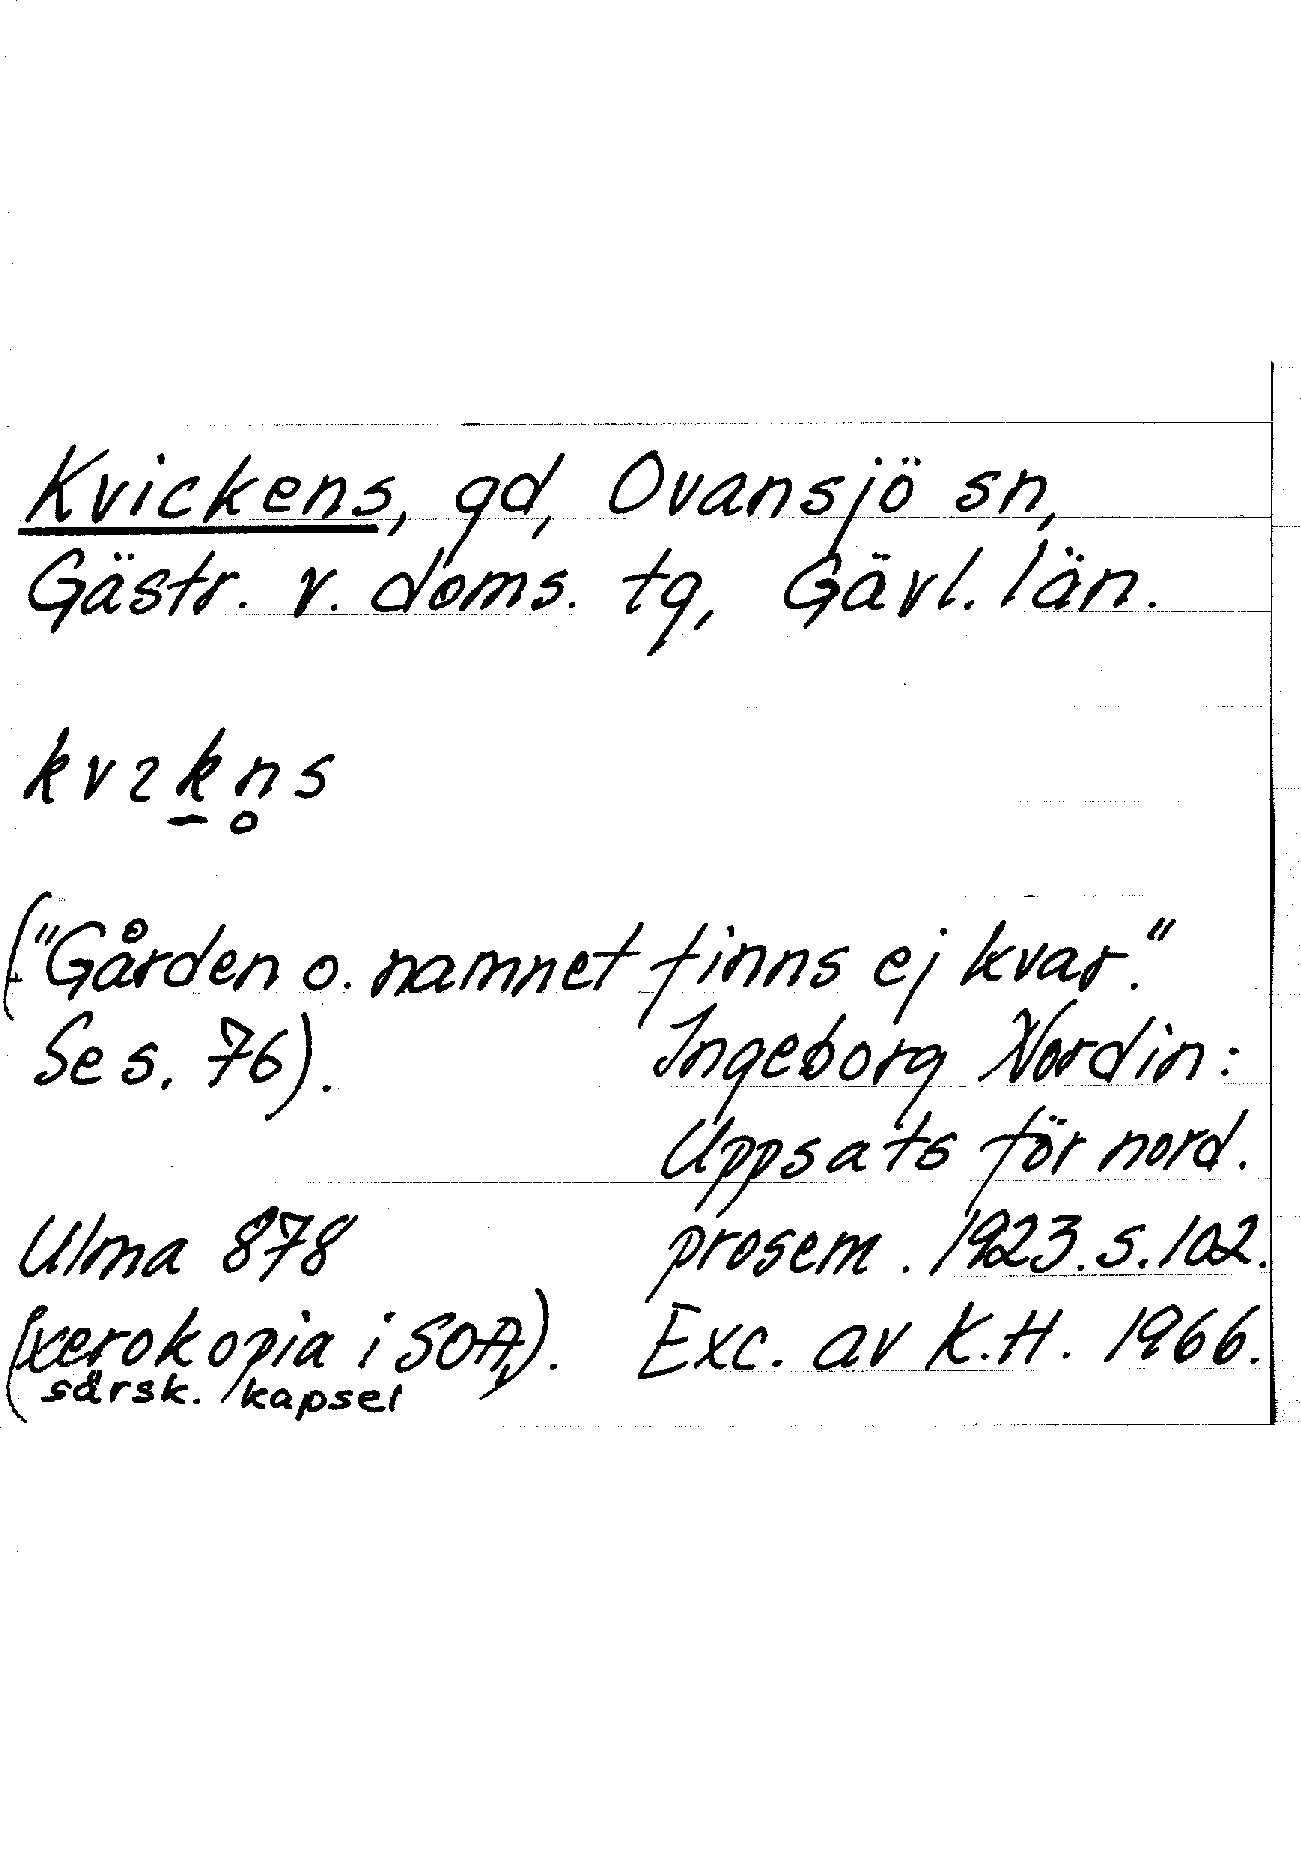 Kvickens, gd, Ovansjö sn,
Gästr. v. doms. tg, Gävl. län.
kvɩk̠n̥s
("Gården o. namnet finns ej kvar."
Se s. 76).
Ingeborg Nordin:
Uppsats för nord.
prosem. 1923. s. 102.
Exc. av K.H. 1966.
Ulma 878
(xerokopia i SOA,).
särsk. kapsel